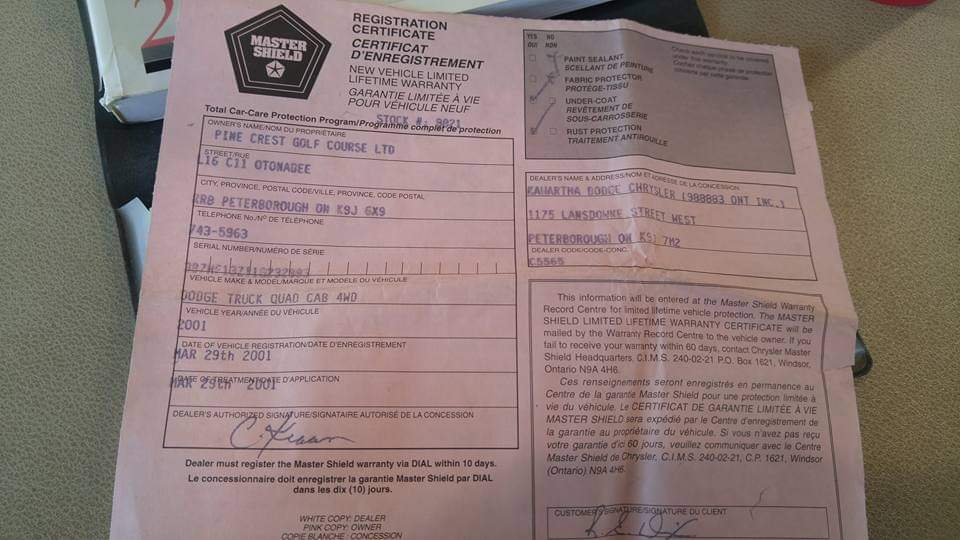 2
MASTER
SHIELD
REGISTRATION
CERTIFICATE
CERTIFICAT
D'ENREGISTREMENT
NEW VEHICLE LIMITED
LIFETIME WARRANTY
GARANTIE LIMITÉE À VIE
POUR VÉHICULE NEUF
STOCK #: 8021
Total Car-Care Protection Program/Programme complet de protection
OWNER'S NAME/NOM DU PROPRIÉTAIRE
PINE CREST GOLF COURSE LTD
STREET/RUE
L16 C11 OTONABEE
CITY, PROVINCE, POSTAL CODE/VILLE, PROVINCE, CODE POSTAL
RR8 PETERBOROUGH ON K9J 6X9
TELEPHONE No./Nº DE TÉLÉPHONE
743-5963
SERIAL NUMBER/NUMÉRO DE SÉRIE
VEHICLE MAKE & MODEL/MARQUE ET MODÈLE DU VÉHICULE
DODGE TRUCK QUAD CAB 4WD
VEHICLE YEAR/ANNÉE DU VÉHICULE
2001
DATE OF VEHICLE REGISTRATION/DATE D'ENREGISTREMENT
MAR 29th 2001
DATE OF TREATMENT/DATE D'APPLICATION
MAR 29th 2001
DEALER'S AUTHORIZED SIGNATURE/SIGNATAIRE AUTORISÉ DE LA CONCESSION
Dealer must register the Master Shield warranty via DIAL within 10 days.
Le concessionnaire doit enregistrer la garantie Master Shield par DIAL
dans les dix (10) jours.
WHITE COPY: DEALER
PINK COPY: OWNER
COPIE BLANCHE: CONCESSION
YES NO
OUI NON
PAINT SEALANT
SCELLANT DE PEINTURE
FABRIC PROTECTOR
PROTÈGE-TISSU
UNDER-COAT
REVÊTEMENT DE
SOUS-CARROSSERIE
RUST PROTECTION
TRAITEMENT ANTIROUILLE
Check each service to be covered
under this warranty.
Cochez chaque phase de protection
couverte par cette garantie.
DEALER'S NAME & ADDRESS/NOM ET ADRESSE DE LA CONCESSION
KAWARTHA DODGE CHRYSLER (988883 ONT INC.)
1175 LANSDOWNE STREET WEST
PETERBOROUGH ON K9J 7M2
DEALER CODE/CODE-CONC.
C5565
This information will be entered at the Master Shield Warranty
Record Centre for limited lifetime vehicle protection. The MASTER
SHIELD LIMITED LIFETIME WARRANTY CERTIFICATE will be
mailed by the Warranty Record Centre to the vehicle owner. If you
fail to receive your warranty within 60 days, contact Chrysler Master
Shield Headquarters, C.I.M.S. 240-02-21 P.O. Box 1621, Windsor,
Ontario N9A 4H6.
Ces renseignements seront enregistrés en permanence au
Centre de la garantie Master Shield pour une protection limitée à
vie du véhicule. Le CERTIFICAT DE GARANTIE LIMITÉE À VIE
MASTER SHIELD sera expédié par le Centre d'enregistrement de
la garantie au propriétaire du véhicule. Si vous n'avez pas reçu
votre garantie d'ici 60 jours, veuillez communiquer avec le Centre
Master Shield de Chrysler, C.I.M.S. 240-02-21, C.P. 1621, Windsor
(Ontario) N9A 4H6.
CUSTOMER'S SIGNATURE/SIGNATURE DU CLIENT